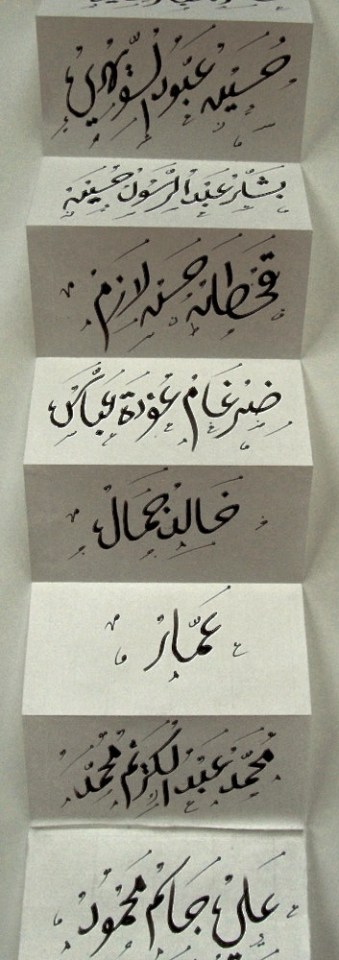 حسين عبود السويدي
بشار عبد الرسول حسين
قحطان حسن لازم
ضرغام عودة عباس
خالد جمال
عمار
محمد عبد الكريم محمد
علي حاكم محمود